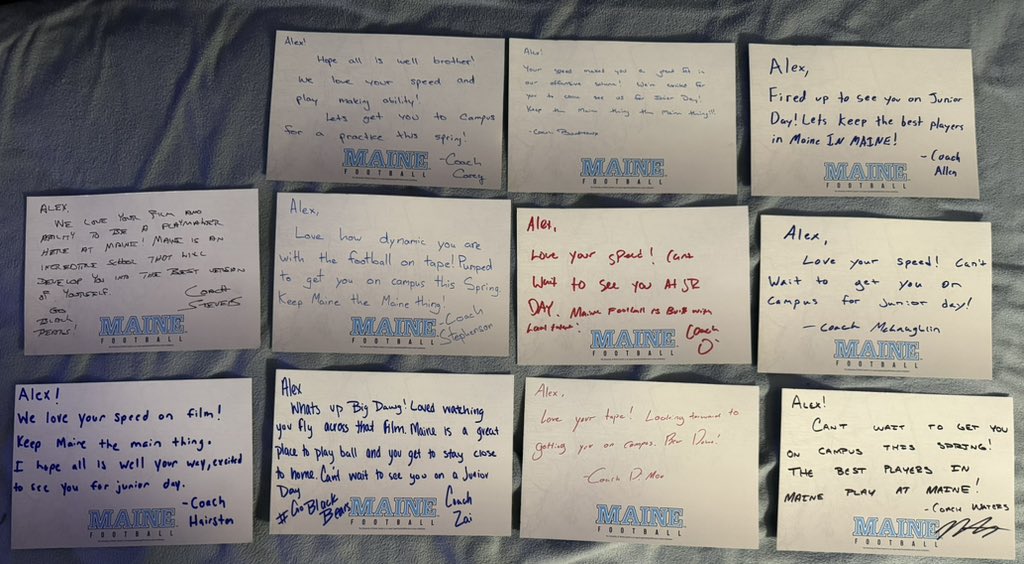 Alex!
Hope all is well brother!
We love your speed and
play making ability!
Lets get you to campus
for a practice this spring!
-Coach
Corey
MAINE
FOOTBALL
Alex!
Your speed makes you a great fit in
our offensive scheme! We're excited for
you to come see us for Junior Day!
Keep the Main thing the Main thing!!!
-Coach
MAINE
FOOTBALL
Alex,
Fired up to see you on Junior
Day! Lets keep the best players
in Maine IN MAINE!
- Coach
Allen
MAINE
FOOTBALL
ALEX,
WE LOVE YOUR FILM AND
ABILITY TO BE A PLAYMAKER
HERE AT MAINE! MAINE IS AN
INCREDIBLE SCHOOL THAT WILL
DEVELOP YOU INTO THE BEST VERSION
OF YOURSELF.
COACH
STEVENS
GO
BLACK
BEARS!
MAINE
FOOTBALL
Alex,
Love how dynamic you are
with the football on tape! Pumped
to get you on campus this Spring.
Keep Maine the Maine thing!
-Coach
Stephenson
MAINE
FOOTBALL
Alex,
Love your speed! Cant
Wait to see you At JR
DAY. Maine Football is Built with
Local talent!
Coach
O.
MAINE
FOOTBALL
Alex,
Love your speed! Can't
Wait to get you on
campus for junior day!
- Coach McLaughlin
MAINE
FOOTBALL
Alex!
We love your speed on film!
Keep Maine the main thing.
I hope all is well your way, excited
to see you for junior day.
-Coach
Hairston
MAINE
FOOTBALL
Alex
Whats up Big Dawg! Loved watching
you fly across that film. Maine is a great
place to play ball and you get to stay close
to home. Can't wait to see you on a Junior
Day
#Go Black
Bears
Coach
Zai
MAINE
FOOTBALL
Alex,
Love your tape! Looking forward to
getting you on campus. Paw Down!
-Coach D. Moo
MAINE
FOOTBALL
ALEX!
CANT WAIT TO GET YOU
ON CAMPUS THIS SPRING!
THE BEST PLAYERS IN
MAINE PLAY AT MAINE!
-COACH WATERS
MAINE
FOOTBALL